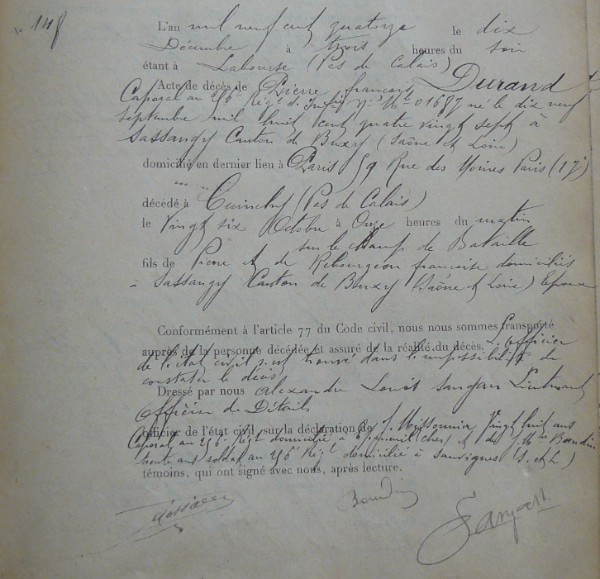 148
L'an mil neuf cent quatorze le dix
Décembre à trois heures du soir
étant à Labourse (Pas de Calais)
Acte de décès de Pierre françois Durand
Caporal au Rég. d'Inf. N° Mle 01687 né le dix neuf
septembre mil huit cent quatre vingt sept à
Sassangy Canton de Buxy (Saône et Loire)
domicilié en dernier lieu à Paris 59 Rue des Moines Paris (17e)
décédé à Cuinchy (Pas de Calais)
le Vingt six Octobre à Onze heures du matin
sur le Champ de Bataille
fils de Pierre et de Rebourgeon francoise domiciliés
à Sassangy Canton de Buxy (Saône et Loire)
Conformément à l'article 77 du Code civil, nous nous sommes transporté
auprès de la personne décédée et assuré de la réalité du décès. L'officier
de l'état civil s'est trouvé dans l'impossibilité de
constater le décès
Dressé par nous Alexandre Louis Lieutenant
Officier de Détails
officier de l'état civil, sur la déclaration de Vingt huit ans
Caporal au Régt domicilié à (Cher) et de Baudin
trente ans soldat au Régt domicilié à Sanvignes (S. et L.)
témoins, qui ont signé avec nous, après lecture.
Baudin